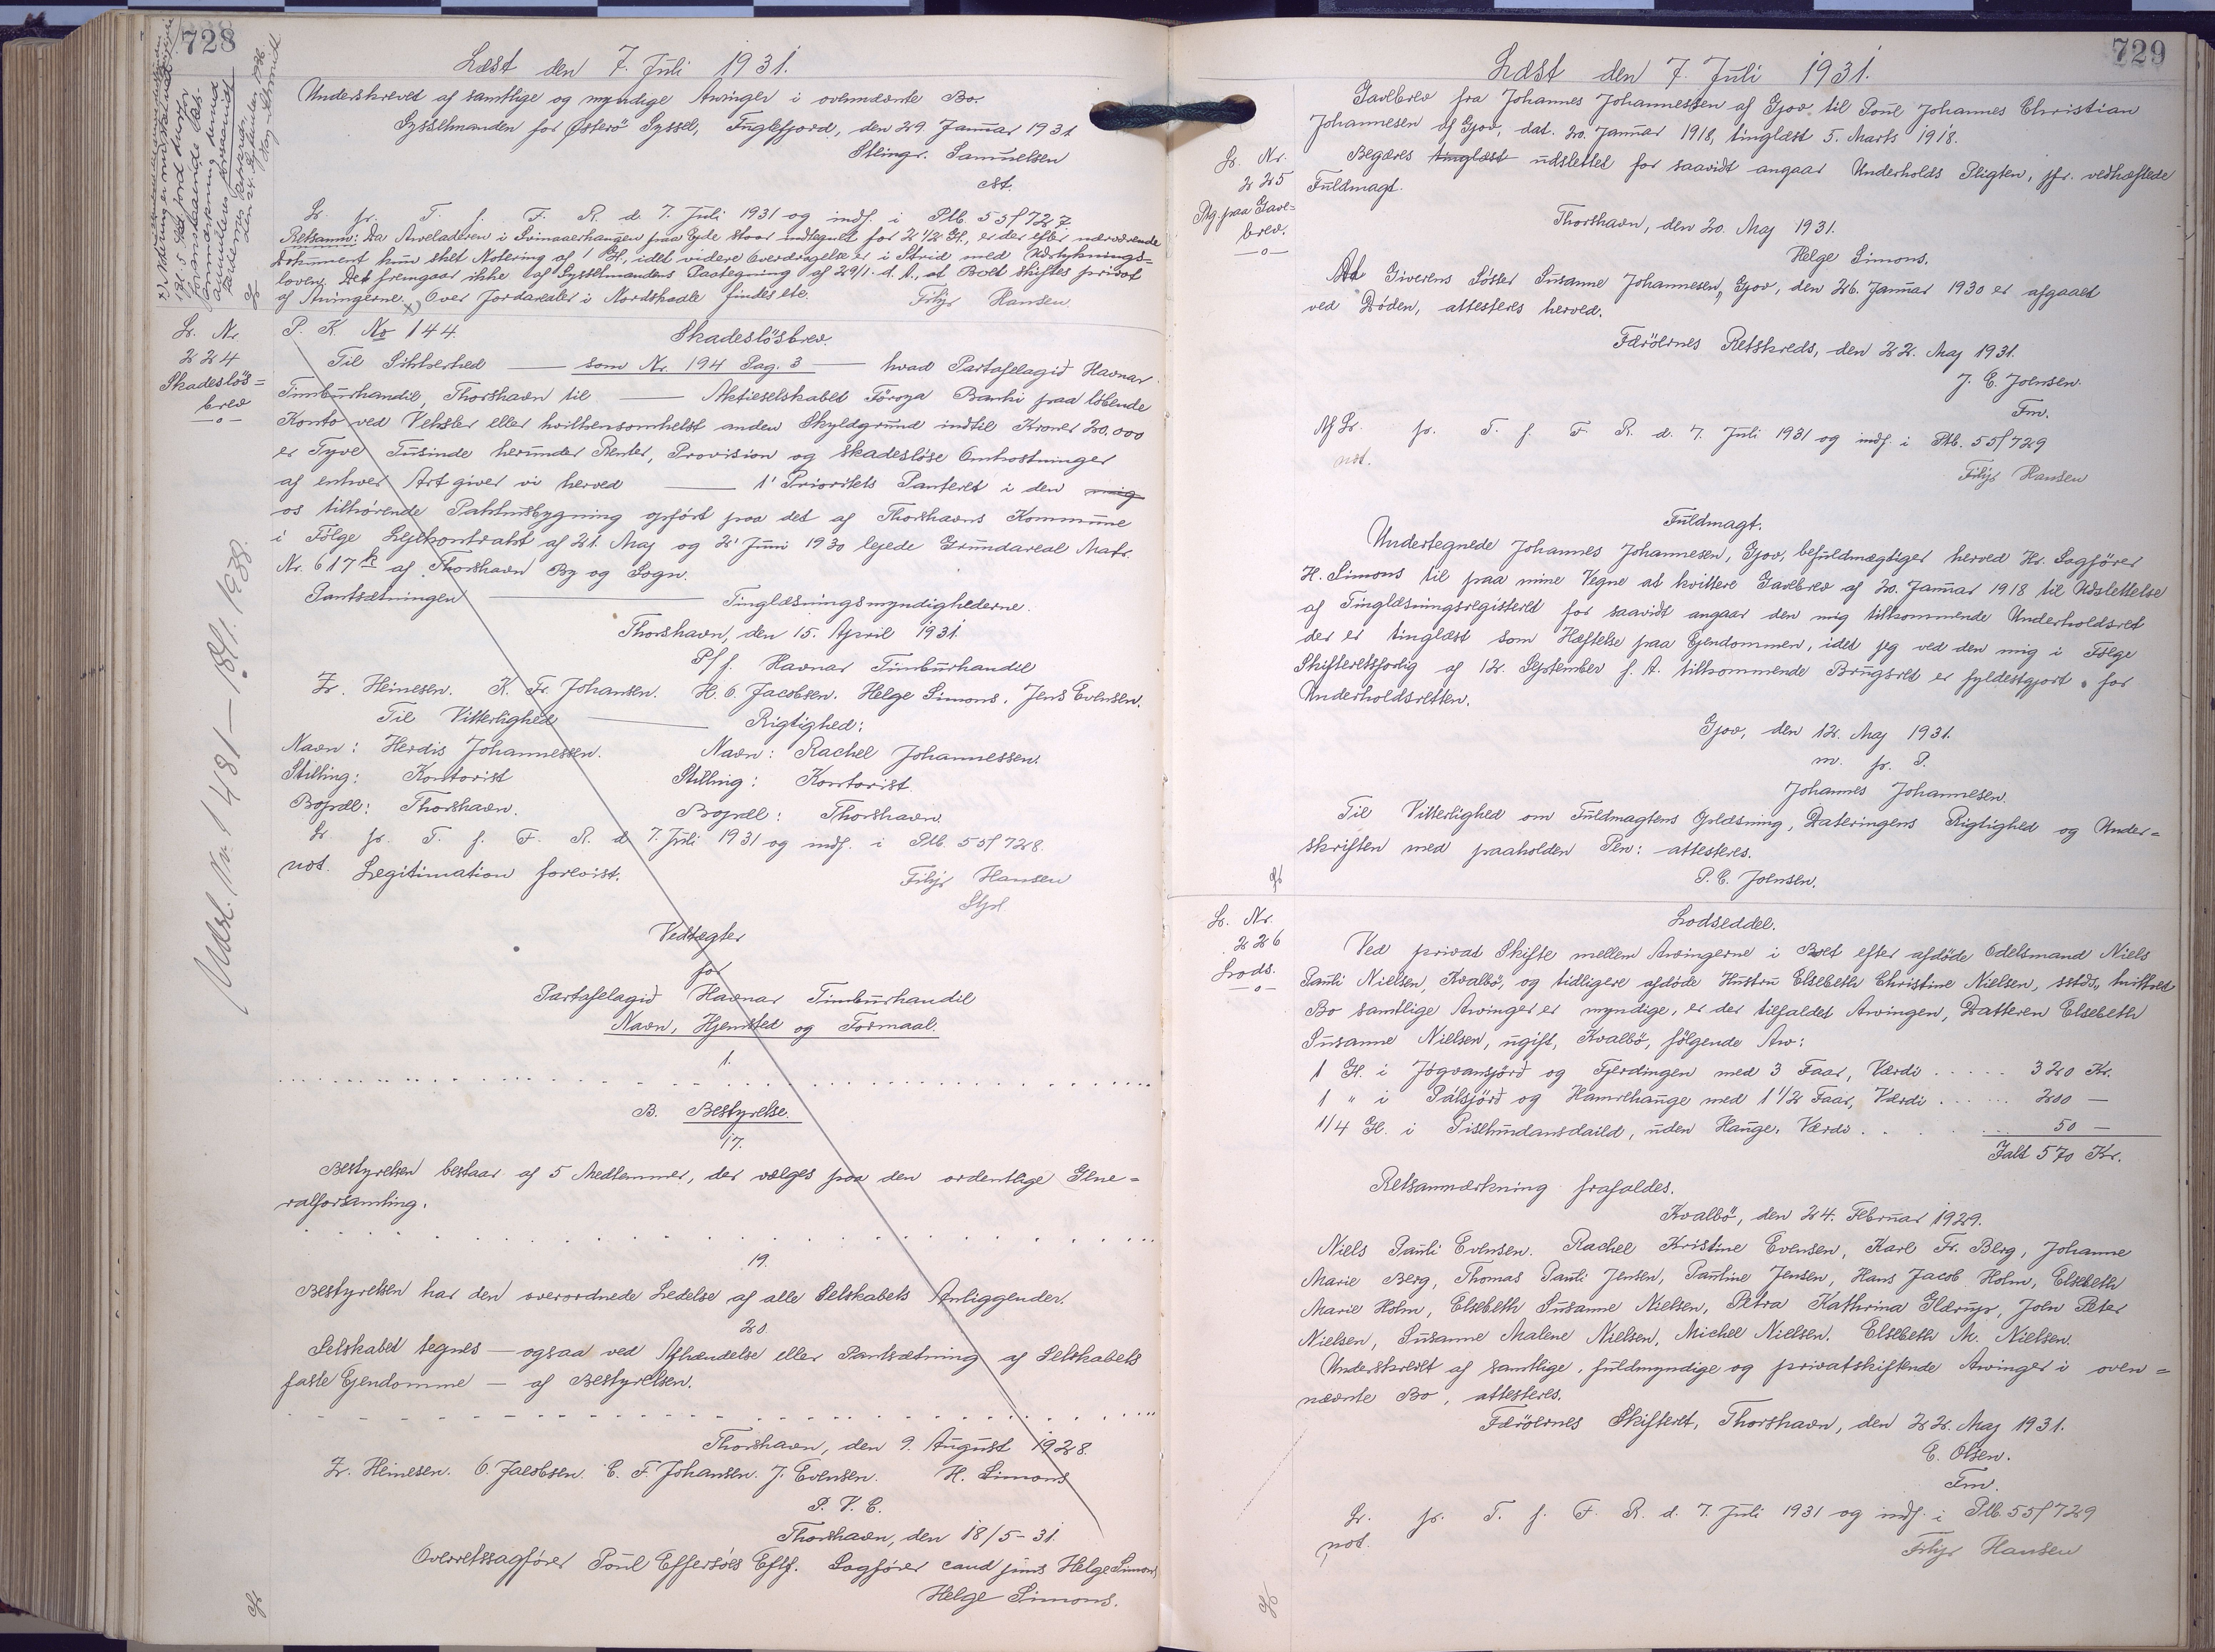 728
Læst den 7. Juli 1931.
Underskrevet af samtlige og myndige Arvinger i ovennævnte Bo.
Sysselmanden for Østerö Syssel, Fuglefjord, den 29. Januar 1931
Stlingr. Samuelsen
cst.
Lr. pr. T. f. F. R. d. 7. Juli 1931 og indf. i Ptb. 55f 727.
Retsanm: Da Arveladeren i Svinaaerhaugen paa Ejde staar indtegnet for 2 1/2 Gl., er der efter nærværende
Dokument kun sket Notering af 1 Gl., idet videre Overdragelse er i Strid med Udstyknings=
loven. Det fremgaar ikke af Sysselmandens Paategning af 29/1. d. A., at Boet skiftes privat
af Arvingerne. x) Over Jordarealer i Nordskaale findes ete.
Filip Hansen.
Lr. Nr.
224
Skadesløs=
brev
—o—
P. K. No 144.
Skadeslösbrev.
Til Sikkerhed —— som Nr. 194 Pag. 3 —— hvad Partafelagid Havnar
Timburhandil, Thorshavn til —— Aktieselskabet Föroya Banki paa löbende
Konto ved Veksler eller hvilkensomhelst anden Skyldgrund indtil Kroner 20.000
er Tyve Tusinde herunder Renter, Provision og skadeslöse Omkostninger
af enhver Art giver vi herved —— 1' Prioritets Panteret i den mig
os tilhørende Pakhusbygning opført paa det af Thorshavns Kommune
i Følge Lejekontrakt af 21. Maj og 2' Juni 1930 lejede Grundareal Matr.
Nr. 617 k af Thorshavn By og Sogn.
Pantsætningen —— Tinglæsningsmyndighederne.
Thorshavn, den 15. April 1931.
P/f. Havnar Timburhandil
Zr. Heinesen. K. Fr. Johansen. H. O. Jacobsen. Helge Simons. Jens Evensen.
Til Vitterlighed —— Rigtighed:
Navn: Herdis Johannessen. Navn: Rachel Johannessen.
Stilling: Kontorist Stilling: Kontorist.
Bopæl: Thorshavn. Bopæl: Thorshavn.
Lr. pr. T. f. F. R. d. 7. Juli 1931 og indf. i Ptb. 55f 728.
not. Legitimation forevist.
Filip Hansen
Udsl. Nr. 1481 — 18/1. 1938.
Vedtægter
for
Partafelagid Havnar Timburhandil
Navn, Hjemsted og Formaal.
1.
B. Bestyrelse.
17.
Bestyrelsen bestaar af 5 Medlemmer, der vælges paa den ordentlige Gene=
ralforsamling.
19.
Bestyrelsen har den overordnede Ledelse af alle Selskabets Anliggender.
20.
Selskabet tegnes — ogsaa ved Afhændelse eller Pantsætning af Selskabets
faste Ejendomme — af Bestyrelsen.
Thorshavn, den 9. August 1928.
Zr. Heinesen. O. Jacobsen. C. F. Johansen. J. Evensen. H. Simons
P. V. C.
Thorshavn, den 18/5-31.
Overretssagfører Poul Effersøes Eftf. Sagfører cand juris Helge Simons
Helge Simons.
729
Læst den 7. Juli 1931.
Lr. Nr.
225
Ptg. paa Gave=
brev.
—o—
Gavebrev fra Johannes Johannessen af Gjov til Poul Johannes Christian
Johannesen af Gjov, dat. 20. Januar 1918, tinglæst 5. Marts 1918.
Begæres tinglæst udslettet for saavidt angaar Underholds Pligten, jfr. vedhæftede
Fuldmagt.
Thorshavn, den 20. Maj 1931.
Helge Simons.
At Giverens Søster Susanne Johannesen, Gjov, den 26. Januar 1930 er afgaaet
ved Døden, attesteres herved.
Færöernes Retskreds, den 22. Maj 1931.
J. C. Joensen.
Fm.
Af Lr. pr. T. f. F. R. d. 7. Juli 1931 og indf. i Ptb. 55f 729
not.
Filip Hansen
Fuldmagt.
Undertegnede Johannes Johannesen, Gjov, befuldmægtiger herved Hr. Sagfører
H. Simons til paa mine Vegne at kvittere Gavebrev af 20. Januar 1918 til Udslettelse
af Tinglæsningsregisteret for saavidt angaar den mig tilkommende Underholdsret
der er tinglæst som Hæftelse paa Ejendommen, idet jeg ved den mig i Følge
Skifteretsforlig af 12. September f. A. tilkommende Brugsret er fyldestgjort for
Underholdsretten.
Gjov, den 12. Maj 1931.
m. p. P.
Johannes Johannesen.
Til Vitterlighed om Fuldmagtens Oplæsning, Dateringens Rigtighed og Under=
skriften med paaholden Pen: attesteres.
P. C. Joensen.
Lr. Nr.
226
Lods.
—o—
Lodseddel.
Ved privat Skifte mellem Arvingerne i Boet efter afdöde Odelsmand Niels
Pauli Nielsen, Kvalbö, og tidligere afdöde Hustru Elsebeth Christine Nielsen, sstds, hvilket
Bo samtlige Arvinger er myndige, er der tilfaldet Arvingen, Datteren Elsebeth
Susanne Nielsen, ugift, Kvalbö, fölgende Arv:
1 Gl. i Jógvansjörð og Fjerdingen med 3 Faar, Værdi ..... 320 Kr.
1 " i Pálsjörð og Hamrehauge med 1 1/2 Faar, Værdi ..... 200 —
1/4 Gl. i Pisehundansdaild, uden Hauge. Værdi ..... 50 —
Ialt 570 Kr.
Retsanmærkning frafaldes.
Kvalbö, den 24. Februar 1929.
Niels Pauli Evensen. Rachel Kristine Evensen, Karl Fr. Berg, Johanne
Marie Berg, Thomas Pauli Jensen, Pauline Jensen, Hans Jacob Holm, Elsebeth
Marie Holm, Elsebeth Susanne Nielsen, Petra Kathrina Glerup, Joen Peter
Nielsen, Susanne Malene Nielsen, Michel Nielsen. Elsebeth M. Nielsen.
Underskrevet af samtlige, fuldmyndige og privatskiftende Arvinger i oven=
nævnte Bo, attesteres.
Færöernes Skifteret, Thorshavn, den 22. Maj 1931.
E. Olsen.
Fm.
Lr. pr. T. f. F. R. d. 7. Juli 1931 og indf. i Ptb. 55f 729
not.
Filip Hansen